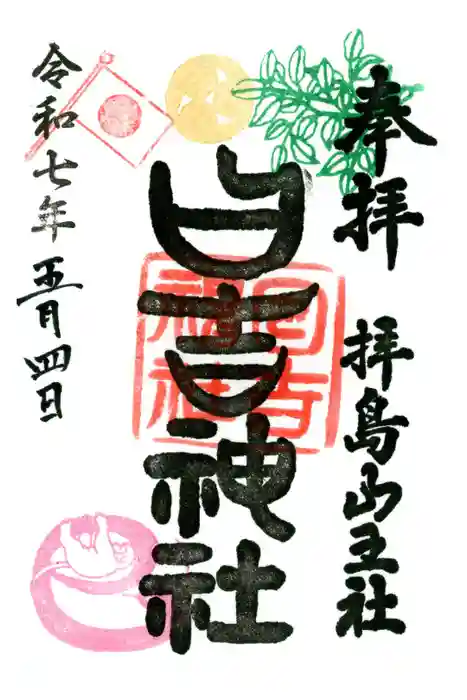 奉拝
拝島山王社
日吉神社
日吉
神社
令和七年
五月四日